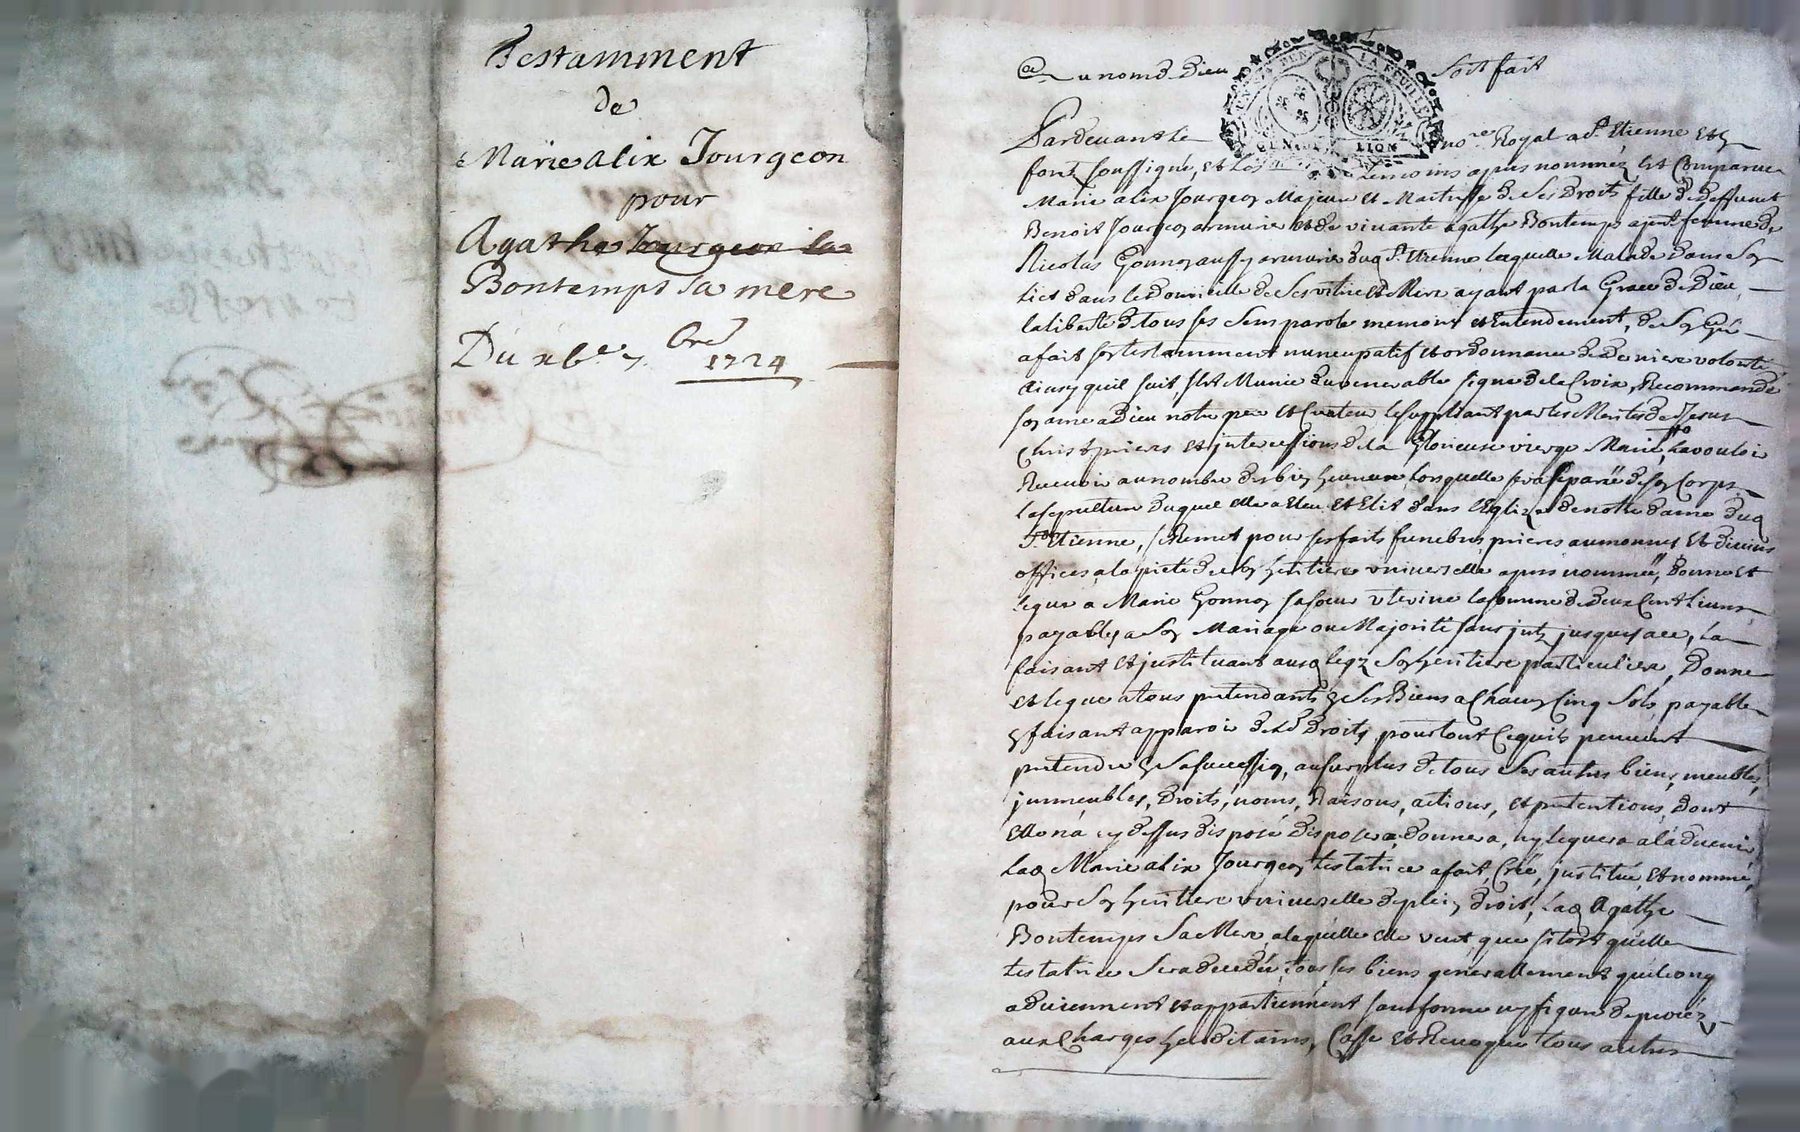 Testamment
de
Marie alix Jourgeon
pour
Agathe Jourgeon sa
Bontemps sa mere
Du xbre 7. 1724
Au nom de Dieu soit fait
GEN LION
Pardevant le nore Royal a St Etienne et en
forez soussigné, et les temoins apres nommez Est Comparue
Marie alix Jourgeon Majeure et Maitresse de ses Droits fille de deffunct
Benoit Jourgeon armurier et de vivante agathe Bontemps a pnt femme de
Nicolas Gonnon aussy armurier dud St Etienne laquelle Malade dans son
lict dans le domicille de ses vitric et Mere ayant par la Grace de Dieu
la liberté de tous ses sens parole memoire et Entendement, de son Gré
a fait son testamment nuncupatif et ordonnance de derniere volonté
Ainsy quil suit, s'est Munie du venerable signe de la Croix, Recommandé
son ame a Dieu notre pere et Createur le suppliant par les Merites de Jesus
Christ prieres et intercessions de la Glorieuse vierge Marie, la vouloir
Recevoir au nombre des bien heureux lorsquelle sera separée de son Corps
la sepulture duquel elle a Eleu et Elit dans l'Eglize de notre dame dud
St Etienne, s'Remet pour ses frais funebres prieres aumonnes et divins
offices a la pieté de son heritiere universelle apres nommée, Donne et
legue a Marie Gonnon sa soeur uterine la somme de deux Cent livres
payables a son Mariage ou Majorité sans jntz jusques a ce, la
faisant et jnstituant aud legz son heritiere particuliere, Donne
et legue a tous pretendants en ses Biens a Chacun Cinq sols, payables
en faisant apparoir de leurs Droits, pour tout ce quils peuvent
pretendre en sa succession, au surplus de tous ses autres biens, meubles,
jmmeubles, Droits, noms, Raisons, actions, et pretentions, dont
Elle n'a cy dessus disposé disposera, donnera, ny leguera a l'advenir,
Lad Marie alix Jourgeon testatrice a fait, Créé, jnstitué, et nommé,
pour son heritiere universelle de plein droit, lad Agathe
Bontemps sa Mere, a laquelle elle veut que sitost quelle
testatrice sera decedée, tous ses biens generallement quelconq
adviennent et appartiennent sans forme ny figure de procéz
aux Charges hereditaires, Casse et Revoque tous autres